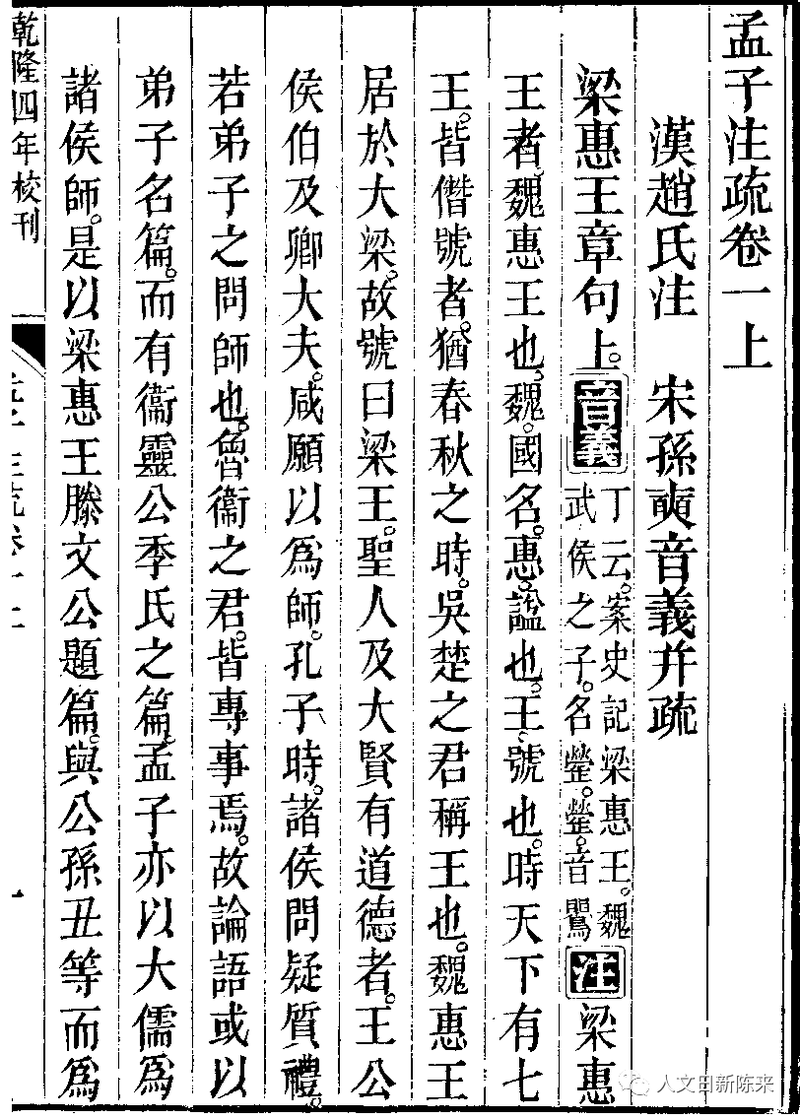 孟子注疏卷一上
漢趙氏注　宋孫奭音義幷疏
梁惠王章句上。音義丁云。案史記梁惠王。魏武侯之子。名罃。罃。音鸎注梁惠
王者。魏惠王也。魏。國名。惠。諡也。王。號也。時天下有七
王。皆僭號者。猶春秋之時。吳楚之君稱王也。魏惠王
居於大梁。故號曰梁王。聖人及大賢有道德者。王公
侯伯及卿大夫。咸願以爲師。孔子時。諸侯問疑質禮。
若弟子之問師也。魯衞之君。皆專事焉。故論語或以
弟子名篇。而有衞靈公季氏之篇。孟子亦以大儒爲
諸侯師。是以梁惠王滕文公題篇。與公孫丑等而爲
乾隆四年校刊
人文日新陈来